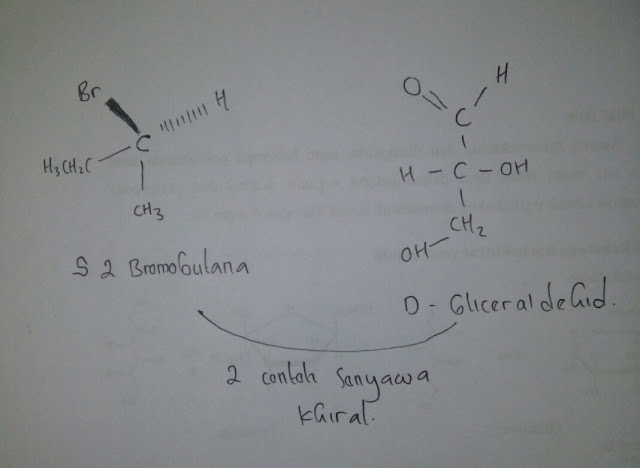 Br
H
C
H3CH2C
CH3
S 2 Bromobutana
O
H
C
H - C - OH
CH2
OH
D - Gliceraldehid.
2 contoh Senyawa
khiral.